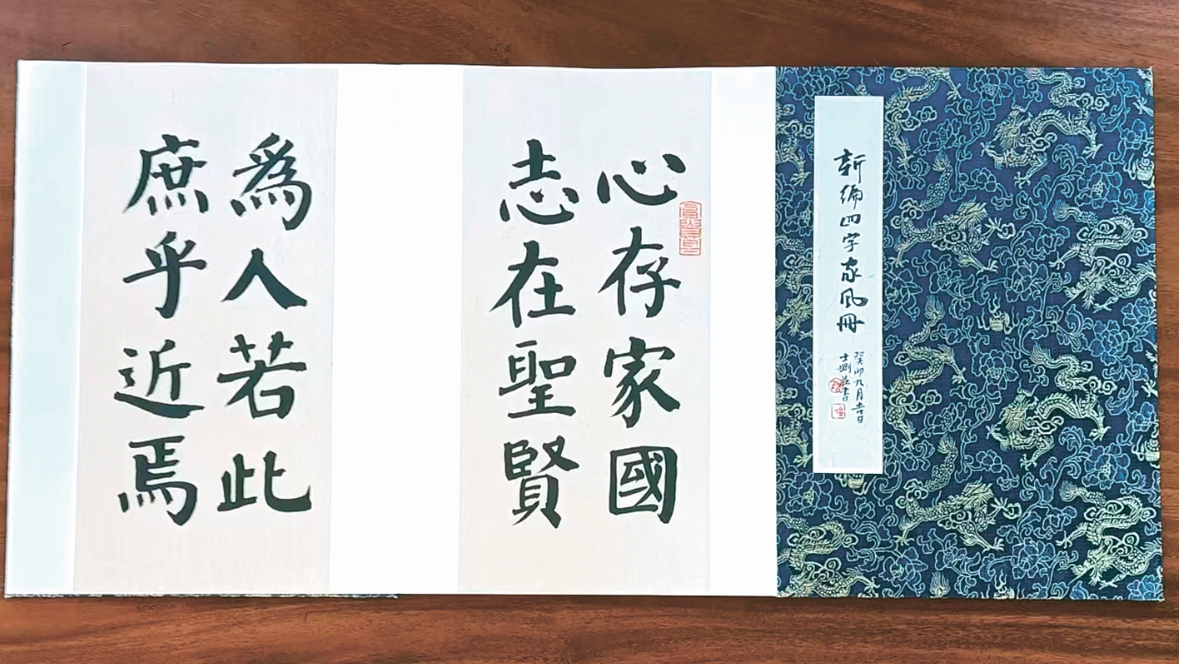 新編四字家風冊
癸卯九月吉日
心存家國
志在聖賢
爲人若此
庶乎近焉